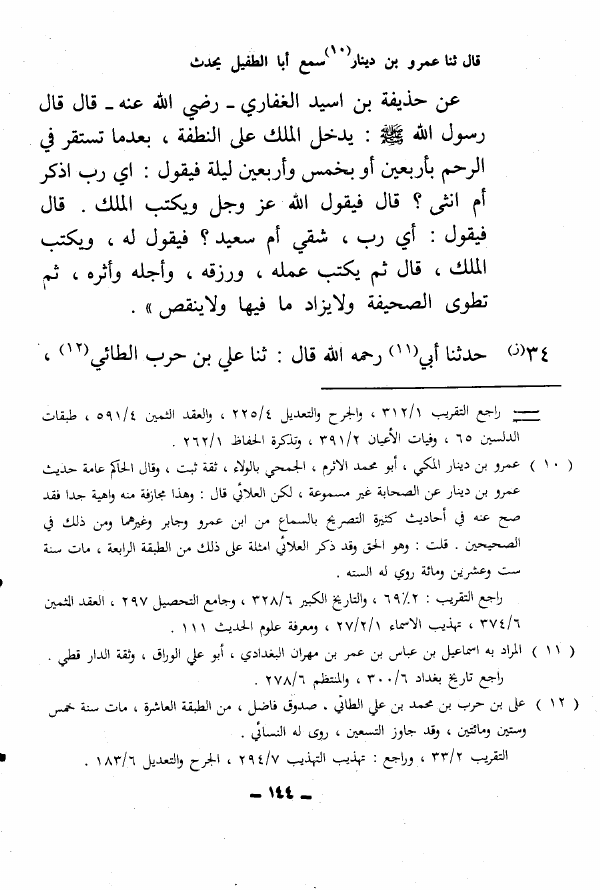 قال ثنا عمرو بن دينار(١٠) سمع أبا الطفيل يحدث
عن حذيفة بن اسيد الغفاري ـ رضي الله عنه ـ قال قال
رسول الله ﷺ : يدخل الملك على النطفة ، بعدما تستقر في
الرحم بأربعين أو بخمس وأربعين ليلة فيقول : اي رب اذكر
أم انثى ؟ قال فيقول الله عز وجل ويكتب الملك . قال
فيقول : أي رب ، شقي أم سعيد ؟ فيقول له ، ويكتب
الملك ، قال ثم يكتب عمله ، ورزقه ، وأجله وأثره ، ثم
تطوى الصحيفة ولايزاد ما فيها ولاينقص » .
٣٤(ز) حدثنا أبي(١١) رحمه الله قال : ثنا علي بن حرب الطائي(١٢) ،
راجع التقريب ٣١٢/١ ، والجرح والتعديل ٢٢٥/٤ ، والعقد الثمين ٥٩١/٤ ، طبقات
الدلسين ٦٥ ، وفيات الأعيان ٣٩١/٢ ، وتذكرة الحفاظ ٢٦٢/١ .
( ١٠ ) عمرو بن دينار المكي ، أبو محمد الاثرم ، الجمحي بالولاء ، ثقة ثبت ، وقال الحاكم عامة حديث
عمرو بن دينار عن الصحابة غير مسموعة ، لكن العلائي قال : وهذا مجازفة منه واهية جدا فقد
صح عنه في أحاديث كثيرة التصريح بالسماع من ابن عمرو وجابر وغيرهما ومن ذلك في
الصحيحين . قلت : وهو الحق وقد ذكر العلائي امثلة على ذلك من الطبقة الرابعة ، مات سنة
ست وعشرين ومائة روي له السته .
راجع التقريب : ٦٩٪٢ ، والتاريخ الكبير ٣٢٨/٦ ، وجامع التحصيل ٢٩٧ ، العقد الثمين
٣٧٤/٦ ، تهذيب الاسماء ٢٧/٢/١ ، ومعرفة علوم الحديث ١١١ .
( ١١ ) المراد به اسماعيل بن عباس بن عمر بن مهران البغدادي ، أبو علي الوراق ، وثقة الدار قطي .
راجع تاريخ بغداد ٣٠٠/٦ ، والمنتظم ٢٧٨/٦ .
( ١٢ ) على بن حرب بن محمد بن علي الطائي . صدوق فاضل ، من الطبقة العاشرة ، مات سنة خمس
وستين ومائتين ، وقد جاوز التسعين ، روى له النسائي .
التقريب ٣٣/٢ ، وراجع : تهذيب التهذيب ٢٩٤/٧ ، الجرح والتعديل ١٨٣/٦ .
ـ ١٤٤ ـ